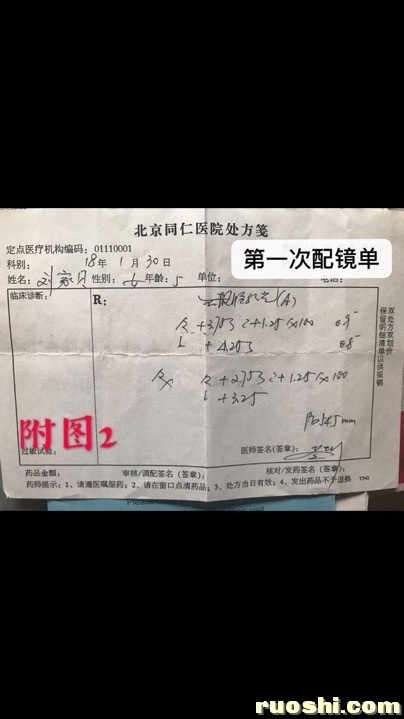 北京同仁医院处方笺
定点医疗机构编码：01110001
科别： 18年 1月 30日
第一次配镜单
姓名： 刘家 性别：女 年龄：5 单位： 电话：
临床诊断：
R： (A)
R +3.75S C+1.25×100 0.9-
L +4.25S 0.8-
Rx R +2.75S C+1.25×100
L +3.25
PD 54.5mm
附图2
过敏试验：
医师签名（签章）：
药品金额： 审核/调配签名（签章）： 核对/发药签名（签章）：
药师提示：1、请遵医嘱服药；2、请在窗口点清药品；3、处方当日有效；4、发出药品不予退换
双处方双划价
保留明细清单以供报销
ruoshi.com